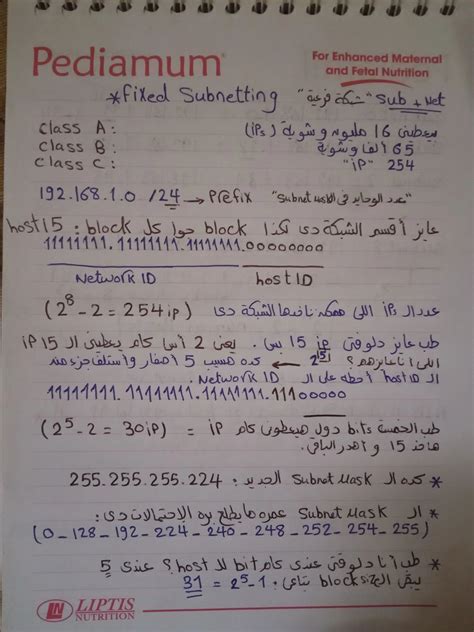 Pediamum®
For Enhanced Maternal
and Fetal Nutrition
*Fixed Subnetting "شبكة فرعية" Sub + Net
class A: بيعطني 16 مليون وشوية (IPs)
class B: 65 ألف وشوية
class C: 254 "iP"
192.168.1.0 /24 → Prefix "عدد الوحايد في الـ Subnet Mask"
عايز أقسم الشبكة دي لكذا block جوا كل block : 15 host
11111111.11111111.11111111.00000000
Network ID host ID
عدد الـ iPs اللي ممكن ناخدها الشبكة دي (2^8 - 2 = 254 ip)
طب عايز دلوقتي 15 ip بس . يعني 2 أس كام يعطيني الـ 15 iP
اللي أنا عايزهم؟ 2^5 ← كده هسيب 5 أصفار وأستلف جزء من
الـ host ID أحطه على الـ Network ID.
11111111.11111111.11111111.11100000
طب الخمسة bits دول هيعطوني كام iP = (2^5 - 2 = 30 iP)
هاخد 15 و أهدر الباقي.
* كده الـ Subnet Mask الجديد : 255.255.255.224
* الـ Subnet Mask عمره ما يطلع بره الاحتمالات دي :
(0 - 128 - 192 - 224 - 240 - 248 - 252 - 254 - 255)
* طب أنا دلوقتي عندي كام bit للـ host؟ عندي 5
يبقى الـ block size بتاعي : 2^5 - 1 = 31
LN LIPTIS
NUTRITION